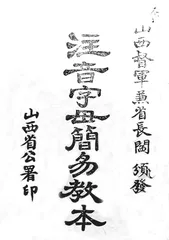 山西督軍兼省長閻 頒發
注音字母簡易教本
山西省公署印